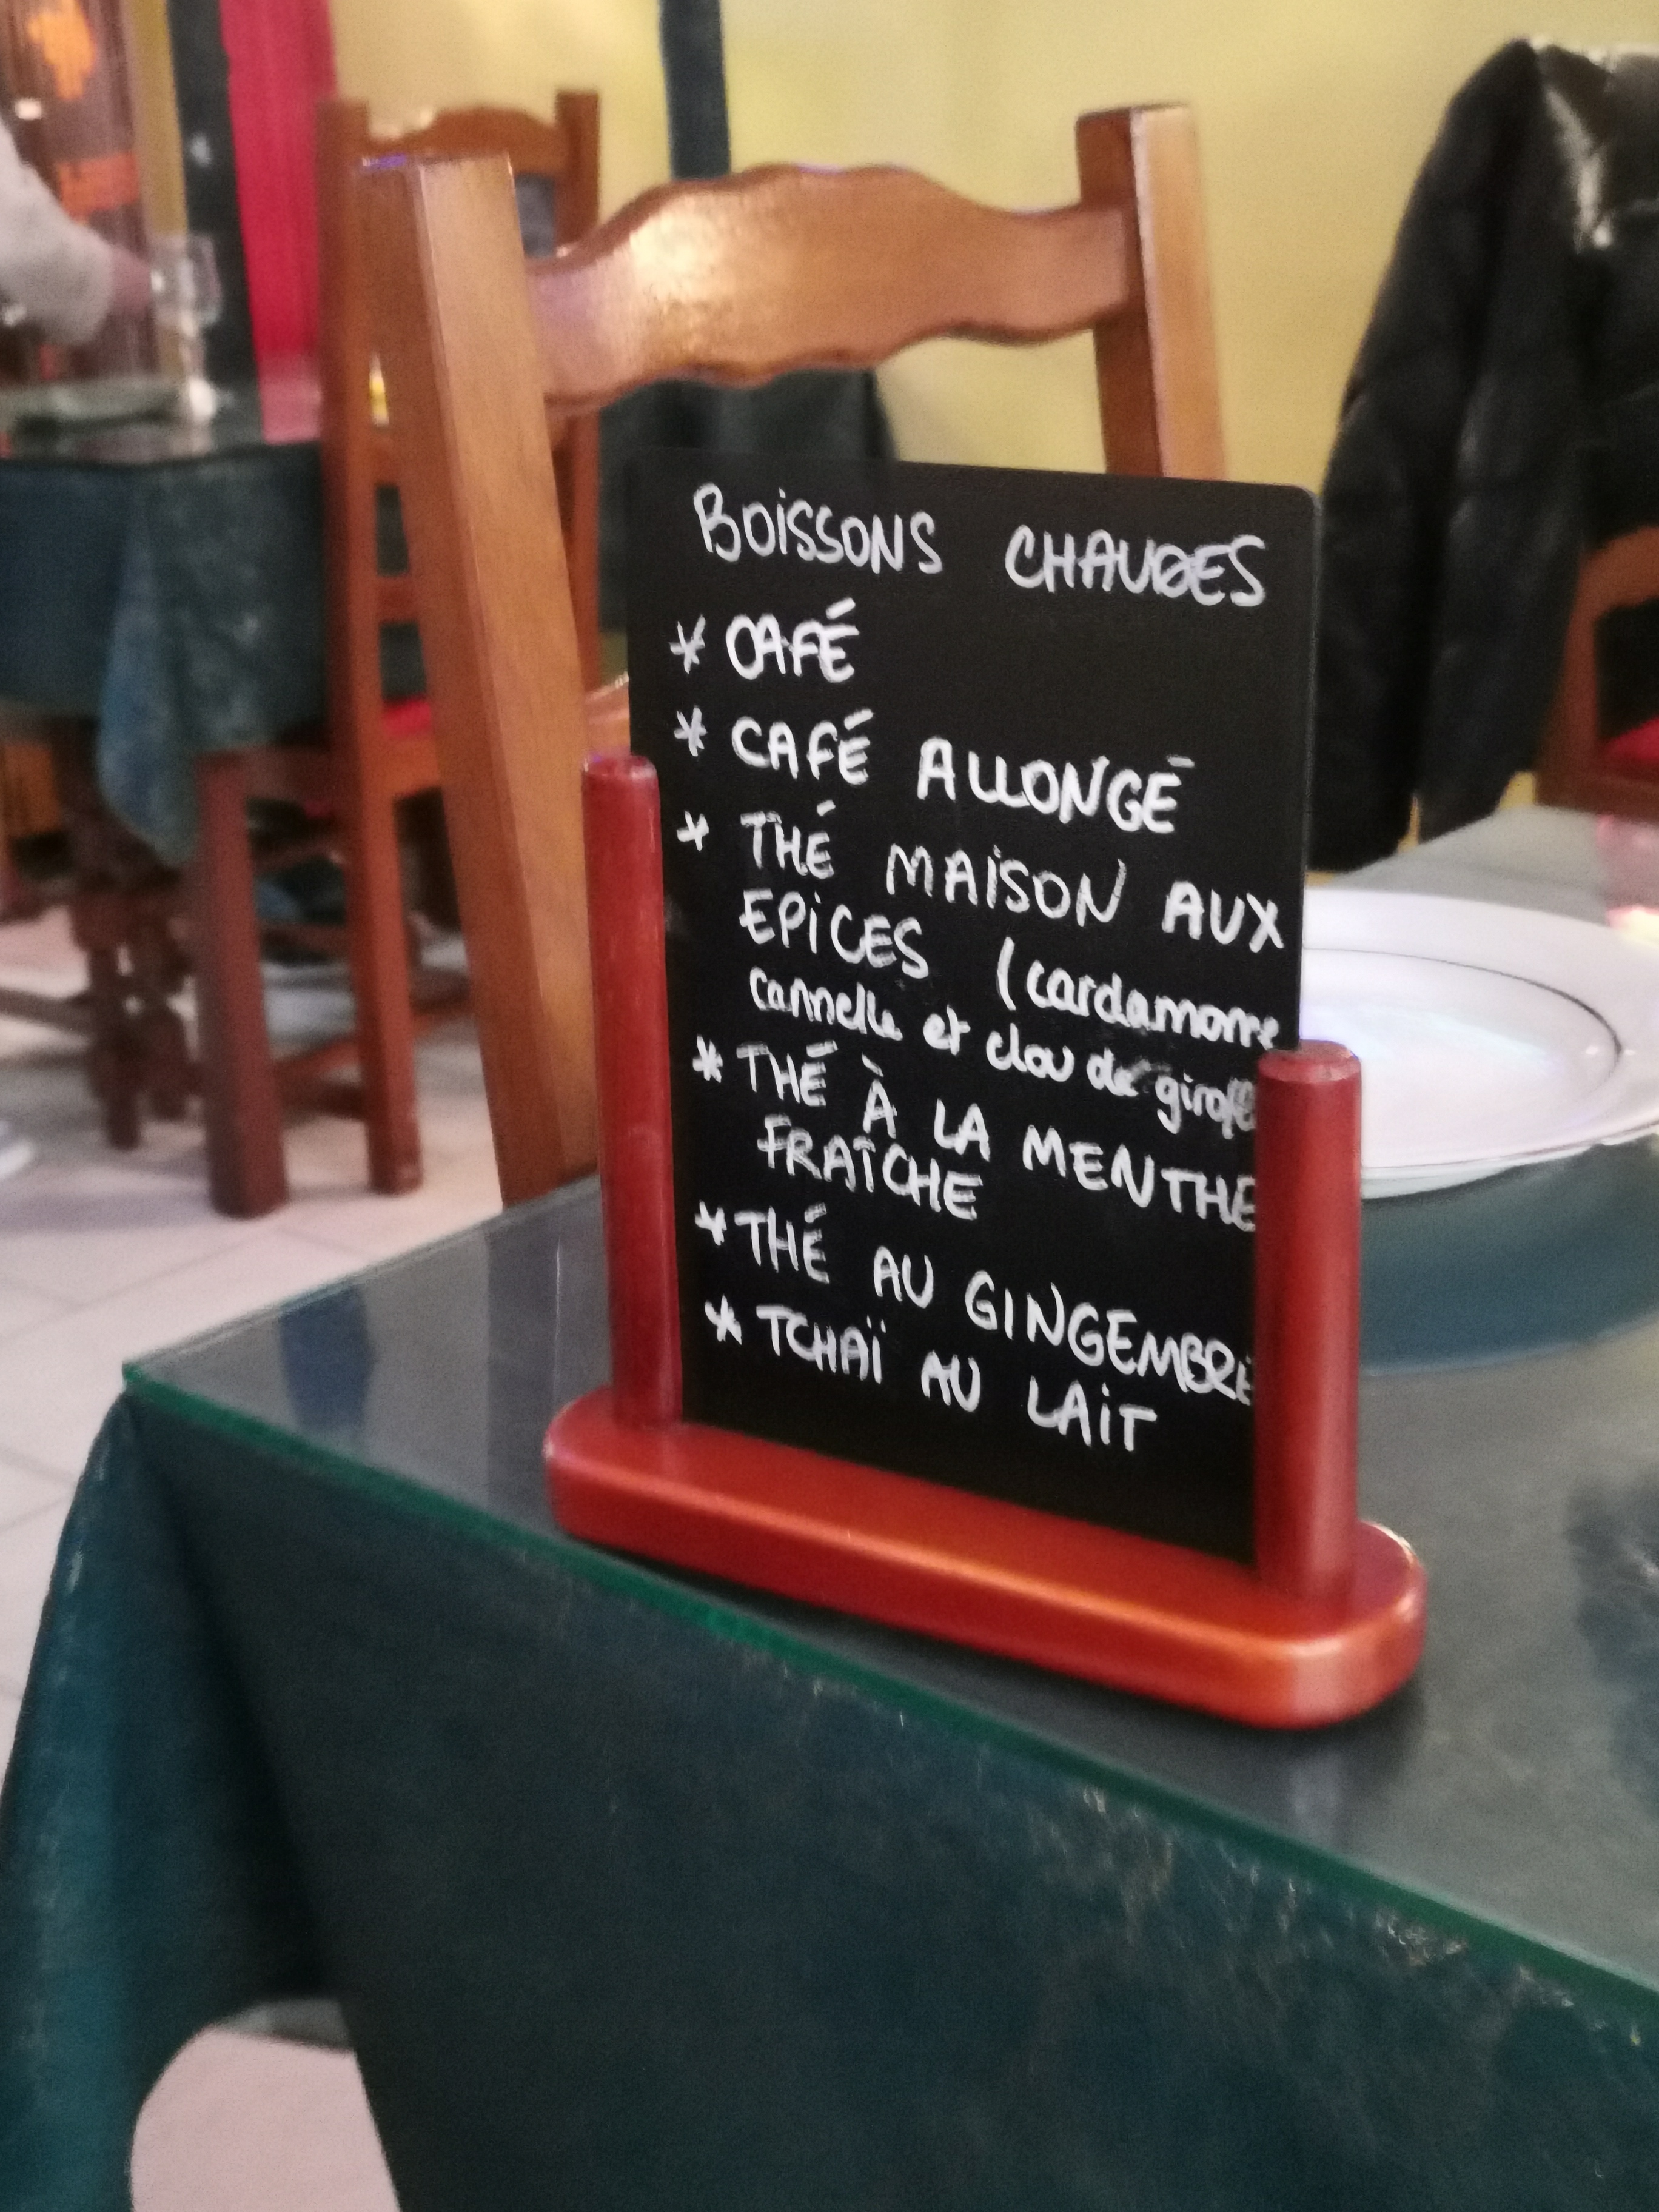 BOISSONS CHAUDES
* CAFÉ
* CAFÉ ALLONGÉ
* THÉ MAISON AUX
EPICES (cardamome
cannelle et clou de girofle
* THÉ À LA MENTHE
FRAÎCHE
* THÉ AU GINGEMBRE
* TCHAÏ AU LAIT